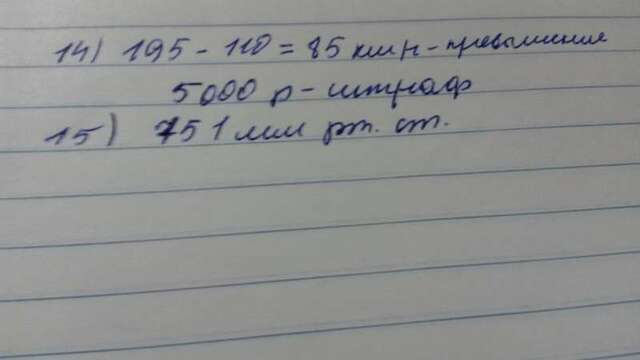 14) 195 - 110 = 85 км/ч - превышение
5000 р - штраф
15) 751 мм рт. ст.